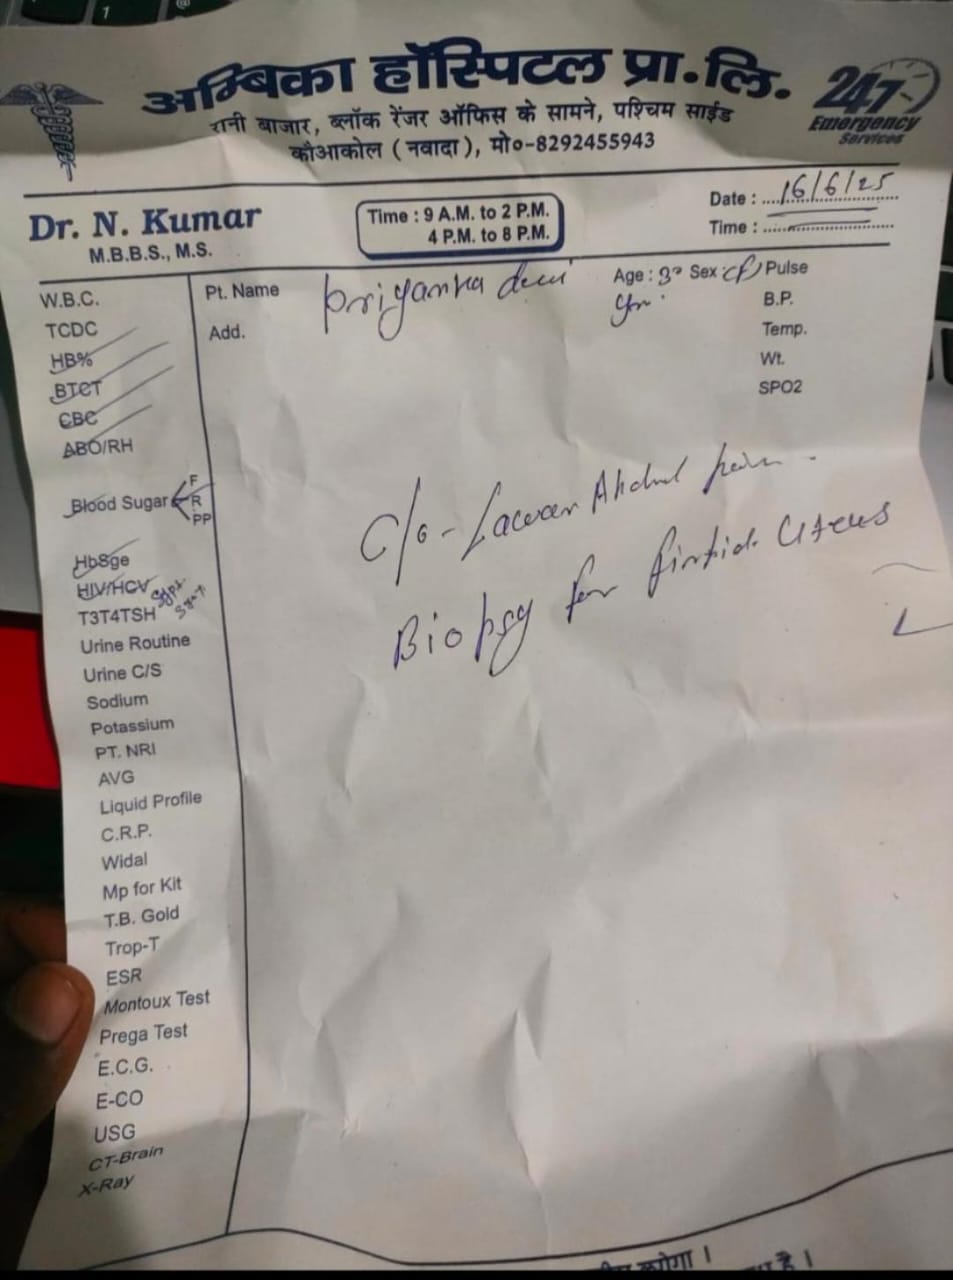 अम्बिका हॉस्पिटल प्रा.लि.
रानी बाजार, ब्लॉक रेंजर ऑफिस के सामने, पश्चिम साईड
कौआकोल (नवादा), मो०-8292455943
247
Emergency
Services
Dr. N. Kumar
M.B.B.S., M.S.
Time : 9 A.M. to 2 P.M.
4 P.M. to 8 P.M.
Date : 16/6/25
Time :
Pt. Name Priyanka devi
Age : 30 Sex (F) Pulse
yrs.
Add.
B.P.
Temp.
Wt.
SPO2
W.B.C.
TCDC
HB%
BTCT
CBC
ABO/RH
Blood Sugar F
R
PP
HbSge
HIV/HCV
T3T4TSH
Urine Routine
Urine C/S
Sodium
Potassium
PT. NRI
AVG
Liquid Profile
C.R.P.
Widal
Mp for Kit
T.B. Gold
Trop-T
ESR
Montoux Test
Prega Test
E.C.G.
E-CO
USG
CT-Brain
X-Ray
C/o - Lower Abdnl pain.
Biopsy for Uterus